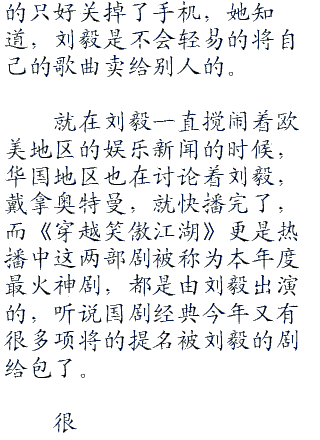 的只好关掉了手机，她知
道，刘毅是不会轻易的将自
己的歌曲卖给别人的。
就在刘毅一直搅闹着欧
美地区的娱乐新闻的时候，
华国地区也在讨论着刘毅，
戴拿奥特曼，就快播完了，
而《穿越笑傲江湖》更是热
播中这两部剧被称为本年度
最火神剧，都是由刘毅出演
的，听说国剧经典今年又有
很多项将的提名被刘毅的剧
给包了。
很